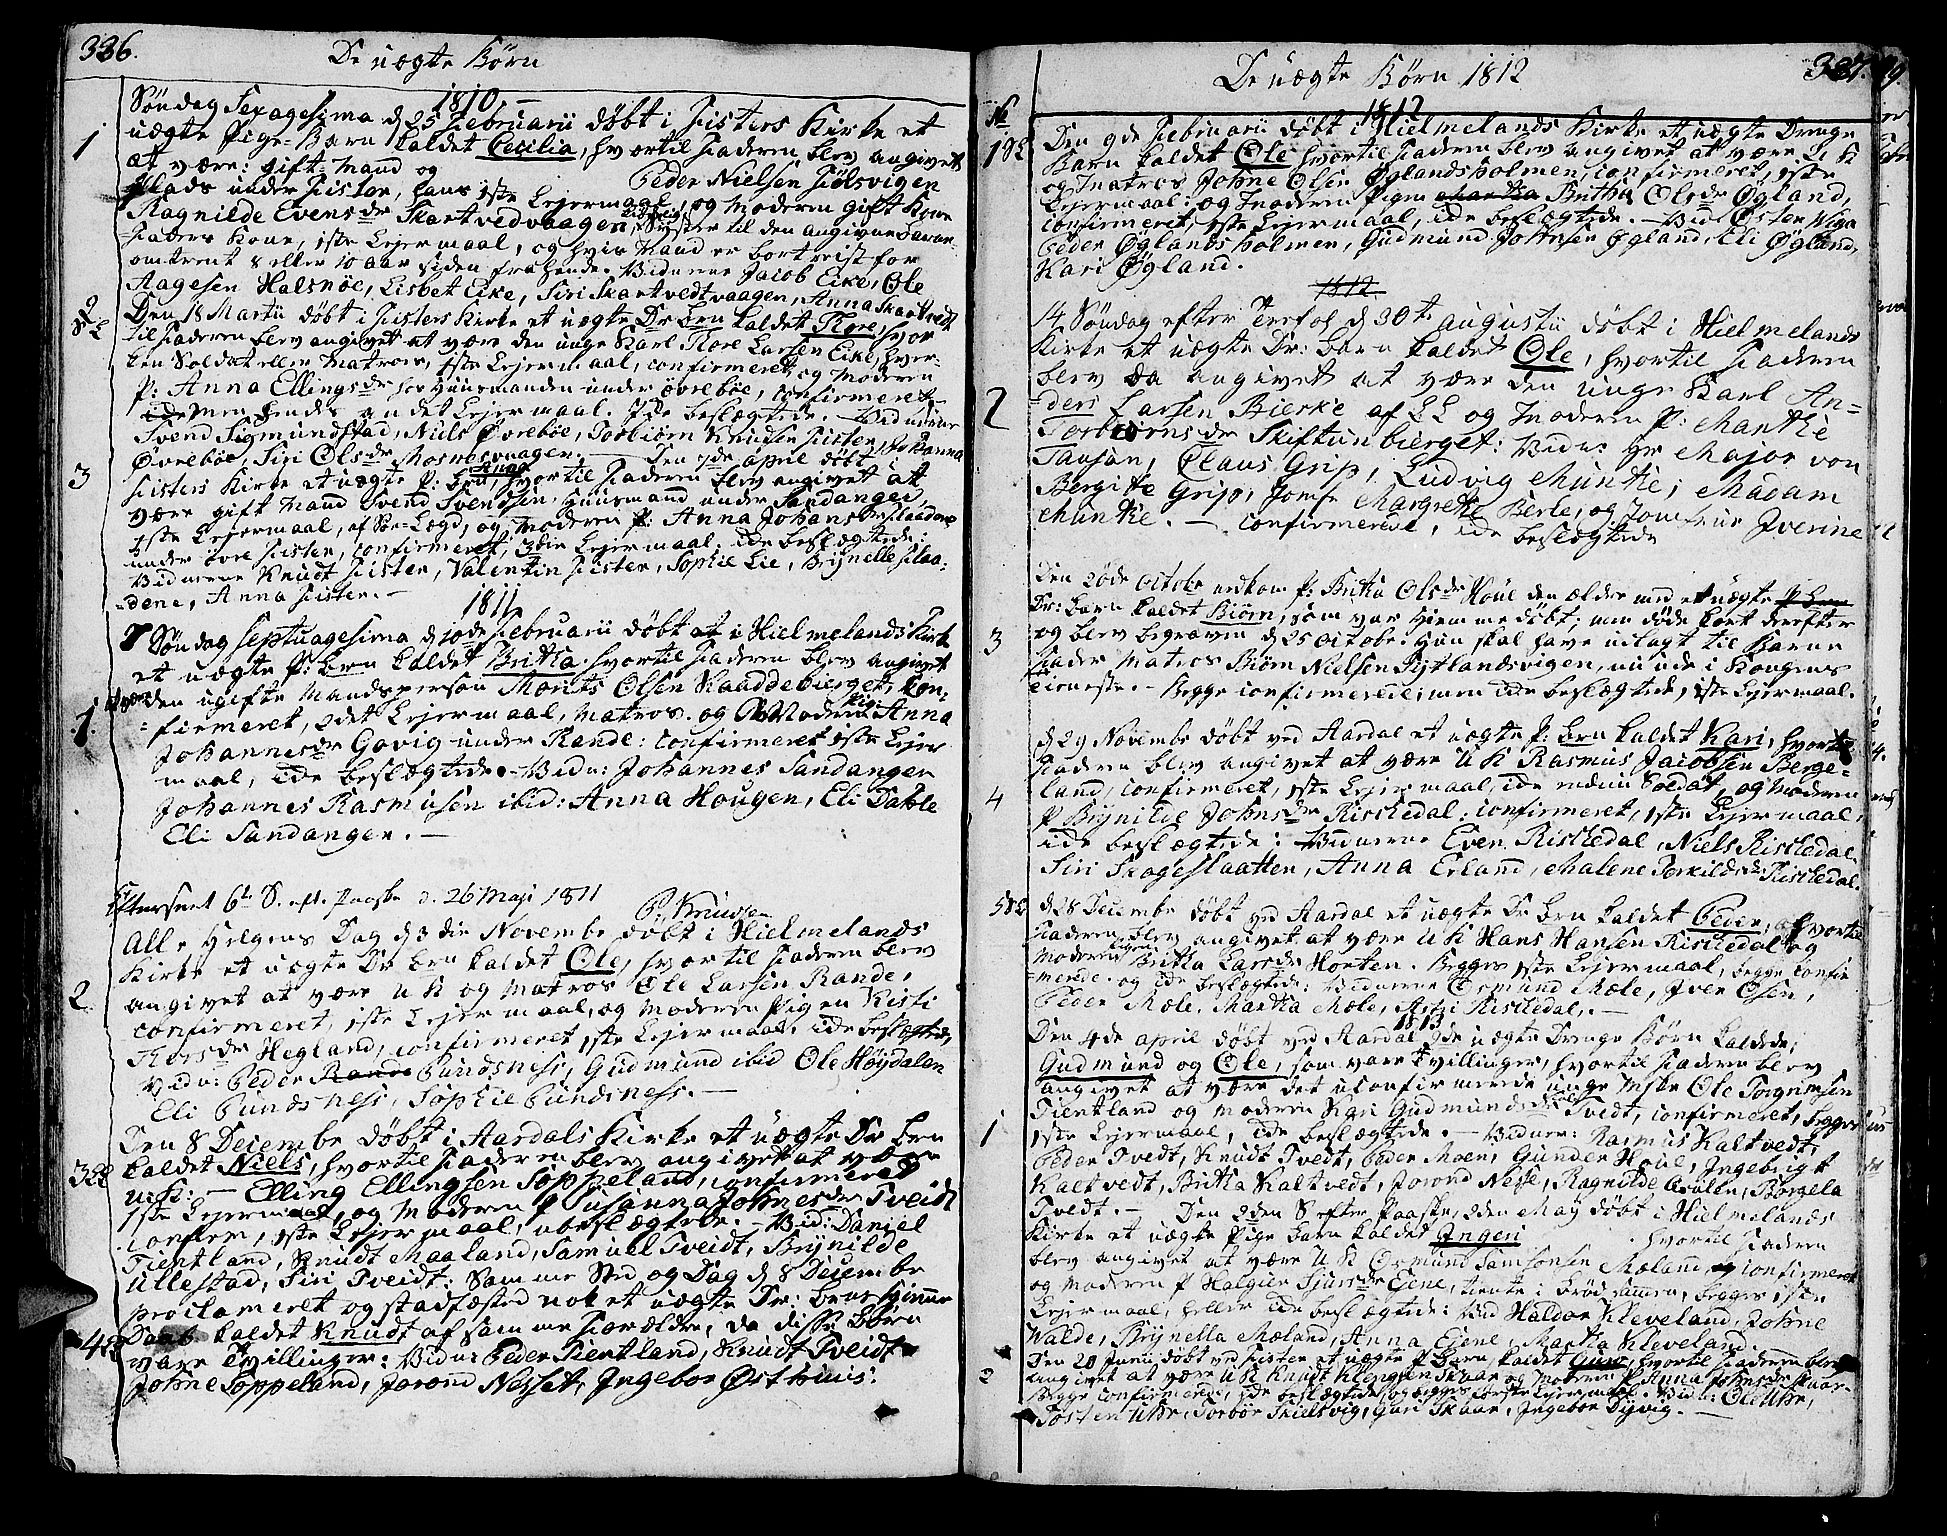 336.
De uægte Børn
1810
Søndag Sexagesima d 25 Februarii døbt i Fisters Kirke et
1
uægte Pige-Barn kaldet Cecilia, hvortil Faderen blev angivet
at være: gift Mand og Peder Nielsen Fiølsvigen
Plads under Fister, hans 1ste Lejermaal, og Moderen gift Kone
Ragnilde Evens dr Skartvedvaagen, Syster til den angivne Barne-
Faders Kone, 1ste Lejermaal, og hvis Mand er bortreist for
omtrent 8 eller 10 aar siden fra hende. Vidnerne Jacob Eike, Ole
Aagesen Halsnøe, Lisbet Eike, Siri Skartvedtvaagen, Anna Skartvedt
2
Den 18 Martii døbt i Fisters Kirke et uægte Dr. brn kaldet Tore, hvor
til Faderen blev angivet at være den unge Karl Tore Larsen Eike, hver-
ken Soldat eller Matros, 1ste Lejermaal, confirmeret, og Moderen
P: Anna Ellings dr hos Huusmanden under Øvrebøe, confirmeret
men hendes andet Lejermaal. Ide beslægtede. - Vidnerne
Svend Sigmundstad, Niels Øvrebøe, Torbiørn Knudsen Fister, Johanna
Øvrebøe, Siri Ols dr Mosnesvaagen. - Den 7de April døbt
3
Fisters Kirke et uægte P: brn, Anna hvortil Faderen blev angivet at
være gift Mand Svend Svendsen Huusmand under Sandanger,
1ste Lejermaal, af Søe-Lægd, og Moderen P: Anna Johans dr Flaadene
under øvre Fister, confirmeret, 3die Lejermaal. ide beslægtede:
Vidnerne Knudt Fister, Valentin Fister, Sophie Lie, Brynelle Flaa-
dene, Anna Fister. -
1811
Søndag Septuagesima d 10de Februarii døbt at i Hielmelands Kirke
et uægte P: brn kaldet Britha. hvortil Faderen blev angivet
1.
være den ugifte Mandsperson Morits Olsen Raaddebierget, con-
firmeret, 2det Lejermaal, Matros. og Moderen Pig: Anna
Johannes dr Govig under Rande: confirmeret 1ste Lejer
maal, ide beslægtede. - Vidn: Johannes Sandanger
Johannes Rasmusen ibid: Anna Hougen, Eli Dahle
Eli Sandanger. -
Efterseet 6te S. eft. Paaske d. 26 Maji 1811 P Knudsen
Alle Helgens Dag d 3die Novembr døbt i Hielmelands
Kirke et uægte Dr brn kaldet Ole, hvortil Faderen blev
2
angivet at være U K og Matros Ole Larsen Rande,
confirmeret, 1ste Lejermaal, og Moderen Pigen Kisti
Thors dr Hegland, confirmeret 1ste Lejermaal. ide beslægtede,
Vidn: Peder Rande Pundsness, Gudmund ibid Ole Høydalen
Eli Pundsness, Sophie Pundsness. -
Den 8 Decembr døbt i Aardals Kirke et uægte Dr brn
3
kaldet Niels, hvortil Faderen blev angivet at være
u: K: - Elling Ellingsen Soppeland, confirmeret
1ste Lejermaal, og Moderen P Susanna Johnes dr Tveidt
confirm, 1ste Lejermaal, ubeslægtede. - Vid: Daniel
Tientland, Knudt Maaland, Samuel Tveidt, Brynilde
Ullestad, Siri Tveidt: Samme Sted og Dag d 8 Decembr
proclameret og stadfæsted nok et uægte Dr: brns Hiemme
4
Daab kaldet Knudt af samme Forældre, da disse børn
vare Tvillinger: Vidn: Peder Tientland, Knudt Tveidt
Johne Soppeland, Jorond Nesset, Ingebor Østhuus.
337.
De uægte Børn 1812
1812
No
1
Den 9de Februarii døbt i Hielmelands Kirke et uægte Drenge
Barn kaldet Ole hvortil Faderen blev angivet at være U K
og Matros Johne Olsen Øglandsholmen, confirmeret, 1ste
Lejermaal: og Moderen Pigen Britha Ols dr Øgland,
confirmeret, 1ste Lejermaal, ide beslægtede. - Vid: Østen Wiga
Peder Øglandsholmen, Gudmund Johnsen Øgland, Eli Øgland,
Kari Øgland.
1812.
14 Søndag efter Trefol d 30te Augustii døbt i Hielmelands
Kirke et uægte Dr: barn kaldet Ole, hvortil Faderen
blev da angivet at være den unge Karl An-
2
ders Larsen Bierke af LL og Moderen P: Marthe
Torbiørns dr Skiftunbierget: Vidn: Hr Major von
Tausan, Claus Grip, Ludvig Munthe; Madam
Bergitte Grip, Jomfr Margrethe Berle, og Jomfrue Iverine
Munthe. - confirmerede, ide beslægtede
Den 20de Octobr nedkom P: Britha Ols dr Houe den ældre med et uægte
Dr: barn kaldet Biørn, som var Hiemmedøbt; men døde kort derefter
3
og blev begraven d 25 Octobr. Hun skal have udlagt til Barne
Fader Matros Biørn Nielsen Pytlandsvigen, nu ude i Kongens
Tieneste. - Begge confirmerede; men ide beslægtede, 1ste Lejermaal.
d 29 Novembr døbt ved Aardal et uægte P: brn kaldet Kari, hvortil
Faderen blev angivet at være U K Rasmus Jacobsen Berge-
4
land, confirmeret, 1ste Lejermaal, ide endnu Soldat, og Moderen
P Brynilde Johns dr Riskedal: confirmeret, 1ste Lejermaal,
ide beslægtede: Vidnerne Even Riskedal, Niels Riskedal
Siri Skogeslaatten, Anna Erland, Malene Torkilds dr Riskedal.
5
d 28 Decembr døbt ved Aardal et uægte Dr brn kaldet Peder, hvortil
Faderen blev angivet at være U K Hans Hansen Riskedal og
Moderen Pigen Britha Lars dr Horten. Begges 1ste Lejermaal, begge confir
merede. og ide beslægtede: Vidnerne Osmund Mæle, Iver Olsen,
Peder Mæle, Martha Mæle, Riskedal. -
1813
Den 4de April døbt ved Aardal 2de uægte Drenge Børn kaldede;
Gudmund og Ole, som vare Tvillinger, hvortil Faderen blev
angivet at være det uconfirmerede unge Mske Ole Torgrimsen
Tientland og Moderen Kari Gudmunds dr Tvedt, confirmeret, begges
1
1ste Lejermaal, ide beslægtede. - Vidner: Rasmus Kaltvedt,
Peder Tvedt, Knudt Tvedt, Peder Moen, Gunder Houe, Ingebrigt
Kaltvedt, Britha Kaltvedt, Jorond Nesse, Ragnilde Aasen, Borgela
Tvedt. - Den 2den S efter Paaske, 2den May døbt i Hielmelands
Kirke et uægte Pige Barn kaldet Ingeri hvortil Faderen
blev angivet at være U K Osmund Samsonsen Mæland, confirmeret
og Moderen P Halgier Siurs dr Eiene, tiente i Brød sammen, begges 1ste
Lejermaal, heller ide beslægtede: Vid Haldor Kleveland, Johne
Walde, Brynella Mæland, Anna Eiene, Martha Kleveland.
Den 20 Junii døbt ved Fister et uægte P Barn, kaldet Guro, hvortil Faderen blev
2
angivet at være U K Knudt Klongsen Skaar og Moderen P Anna Johns dr Skaar
begge confirmerede, ide beslægtede, og begges første Lejermaal. Vidn: Ole Uhr,
Tosten Uhr, Torbør Skielsvig, Guri Skaar, Ingebor Dyvig. -